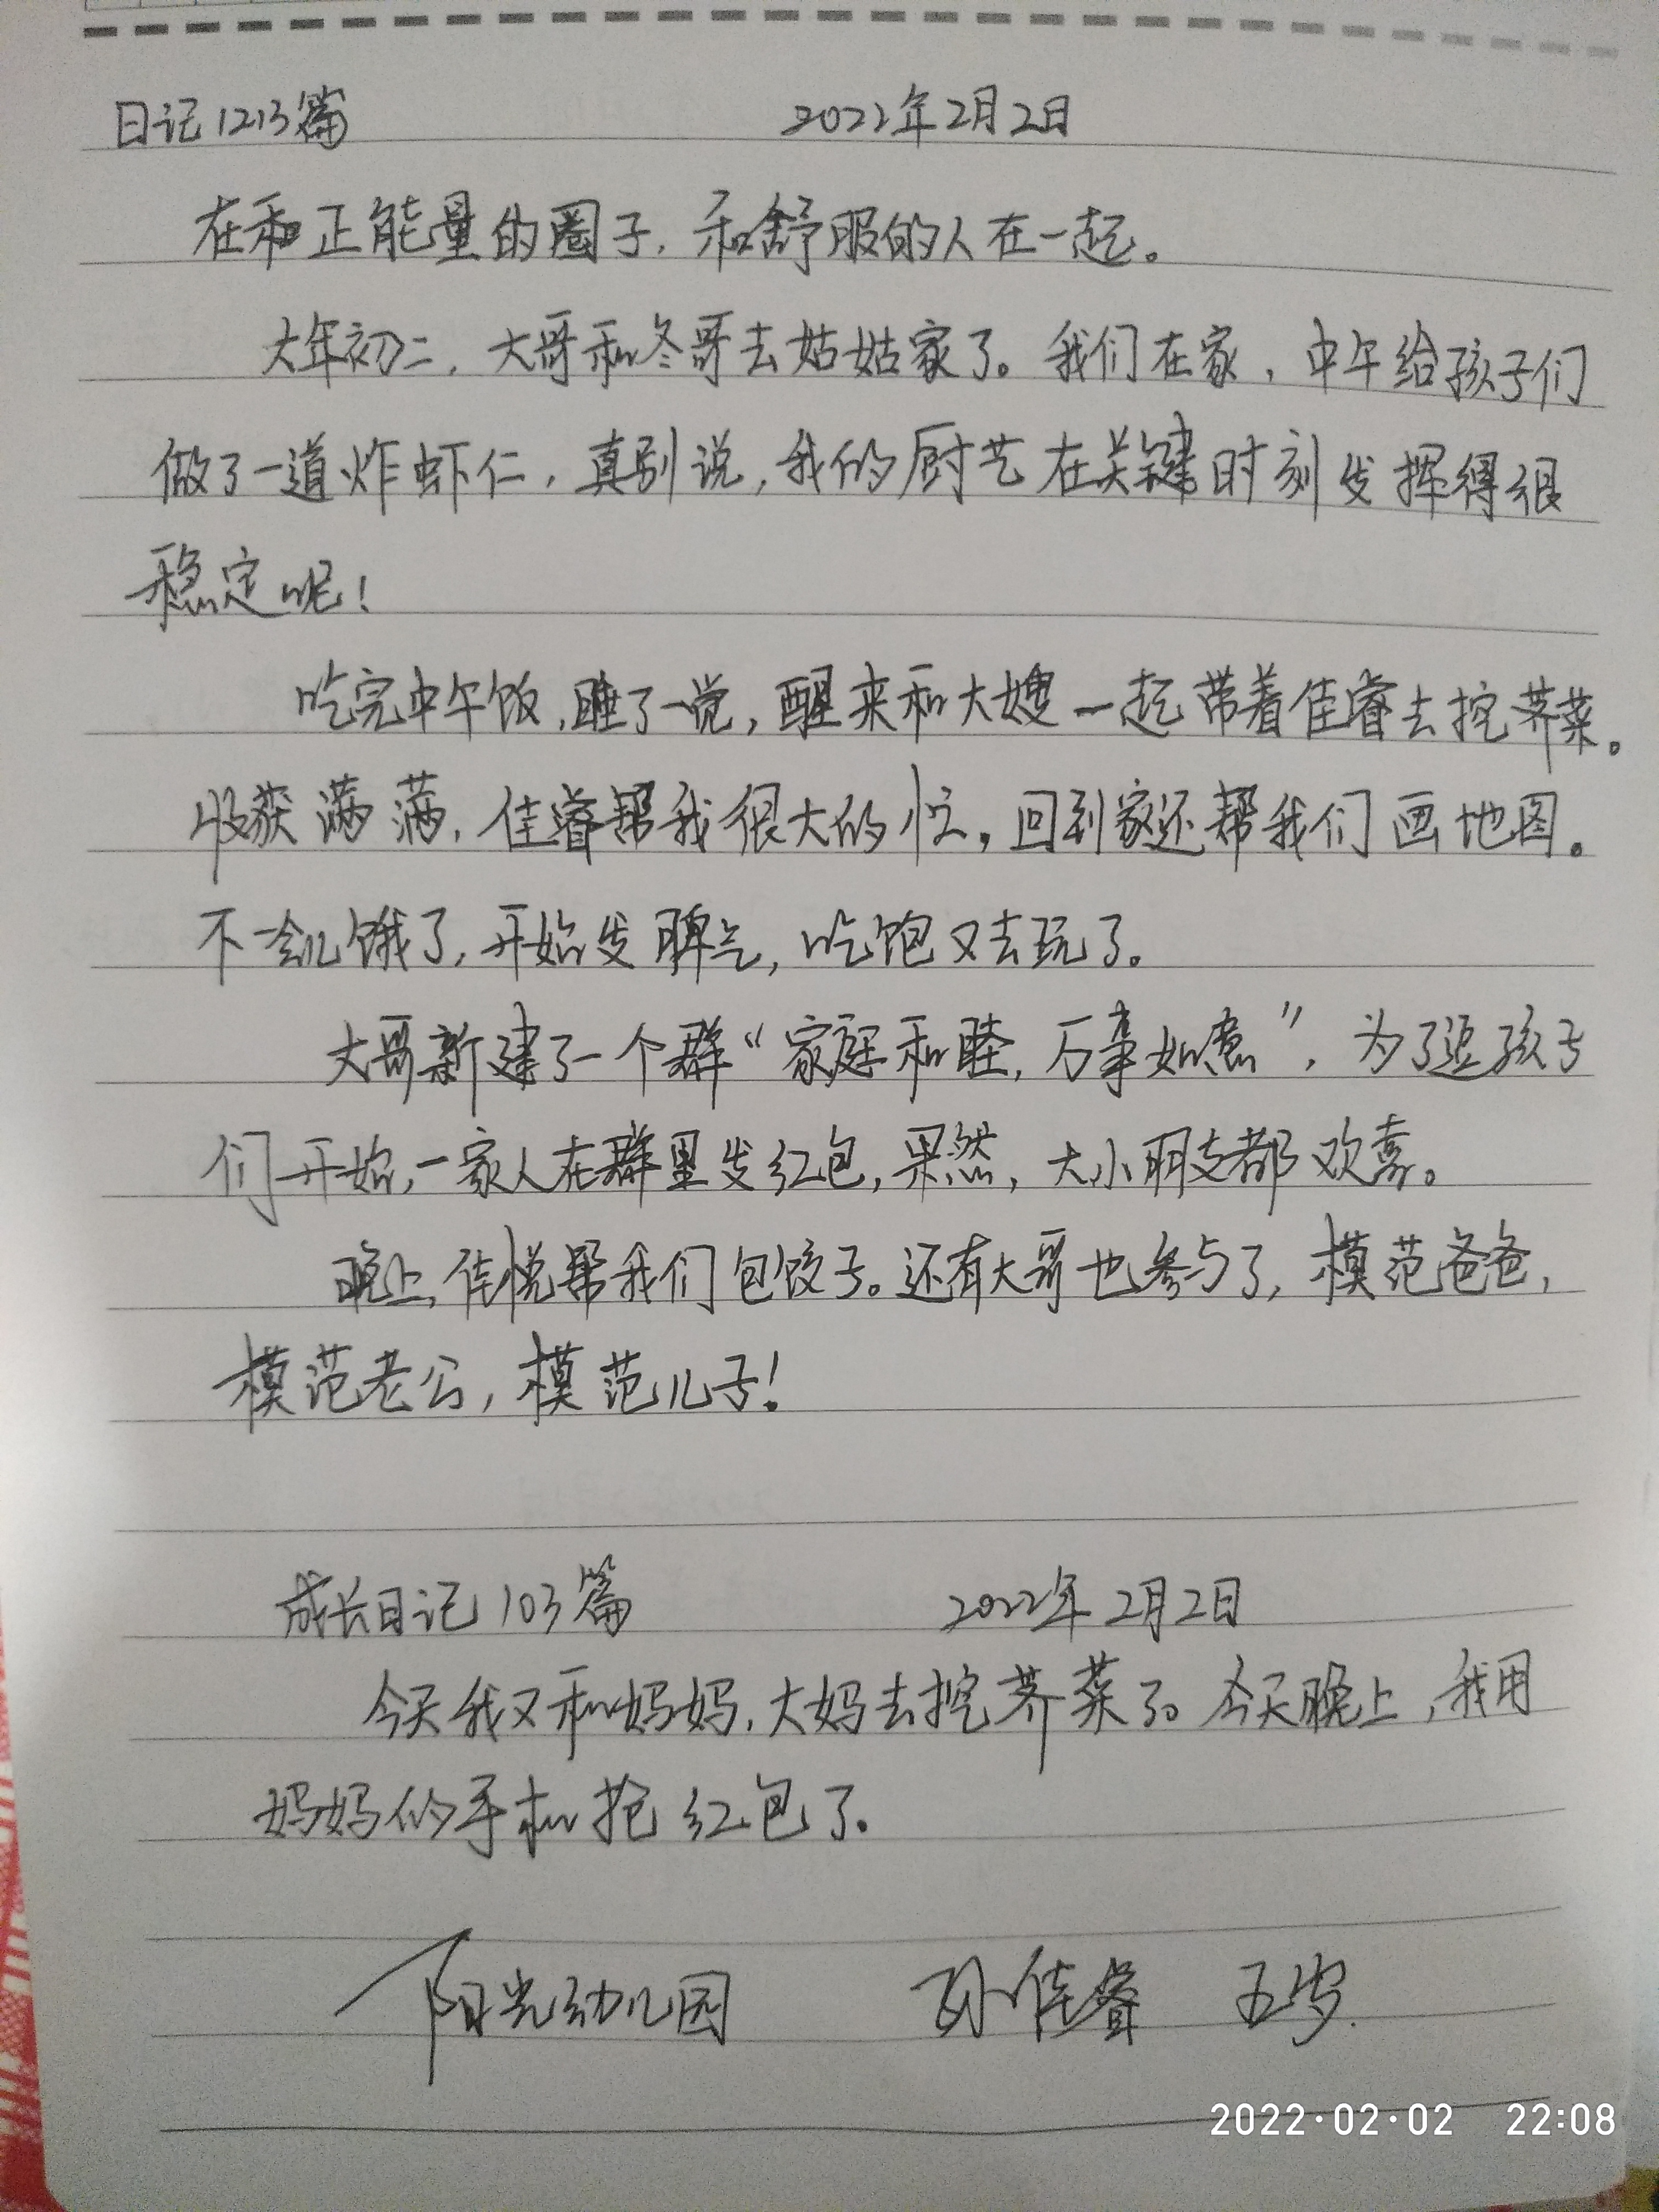 日记1213篇 2022年2月2日
在和正能量的圈子，和舒服的人在一起。
大年初二，大哥和冬哥去姑姑家了。我们在家，中午给孩子们
做了一道炸虾仁，真别说，我的厨艺在关键时刻发挥得很
稳定呢！
吃完中午饭，睡了一觉，醒来和大嫂一起带着佳睿去挖荠菜。
收获满满，佳睿帮我很大的忙，回到家还帮我们画地图。
不一会儿饿了，开始发脾气，吃饱又去玩了。
大哥新建了一个群“家庭和睦，万事如意”，为了逗孩子
们开始，一家人在群里发红包，果然，大小朋友都欢喜。
晚上，佳悦帮我们包饺子。还有大哥也参与了，模范爸爸，
模范老公，模范儿子！
成长日记103篇 2022年2月2日
今天我又和妈妈，大妈去挖荠菜了。今天晚上，我用
妈妈的手机抢红包了。
阳光幼儿园 孙佳睿 五岁.
2022·02·02 22:08